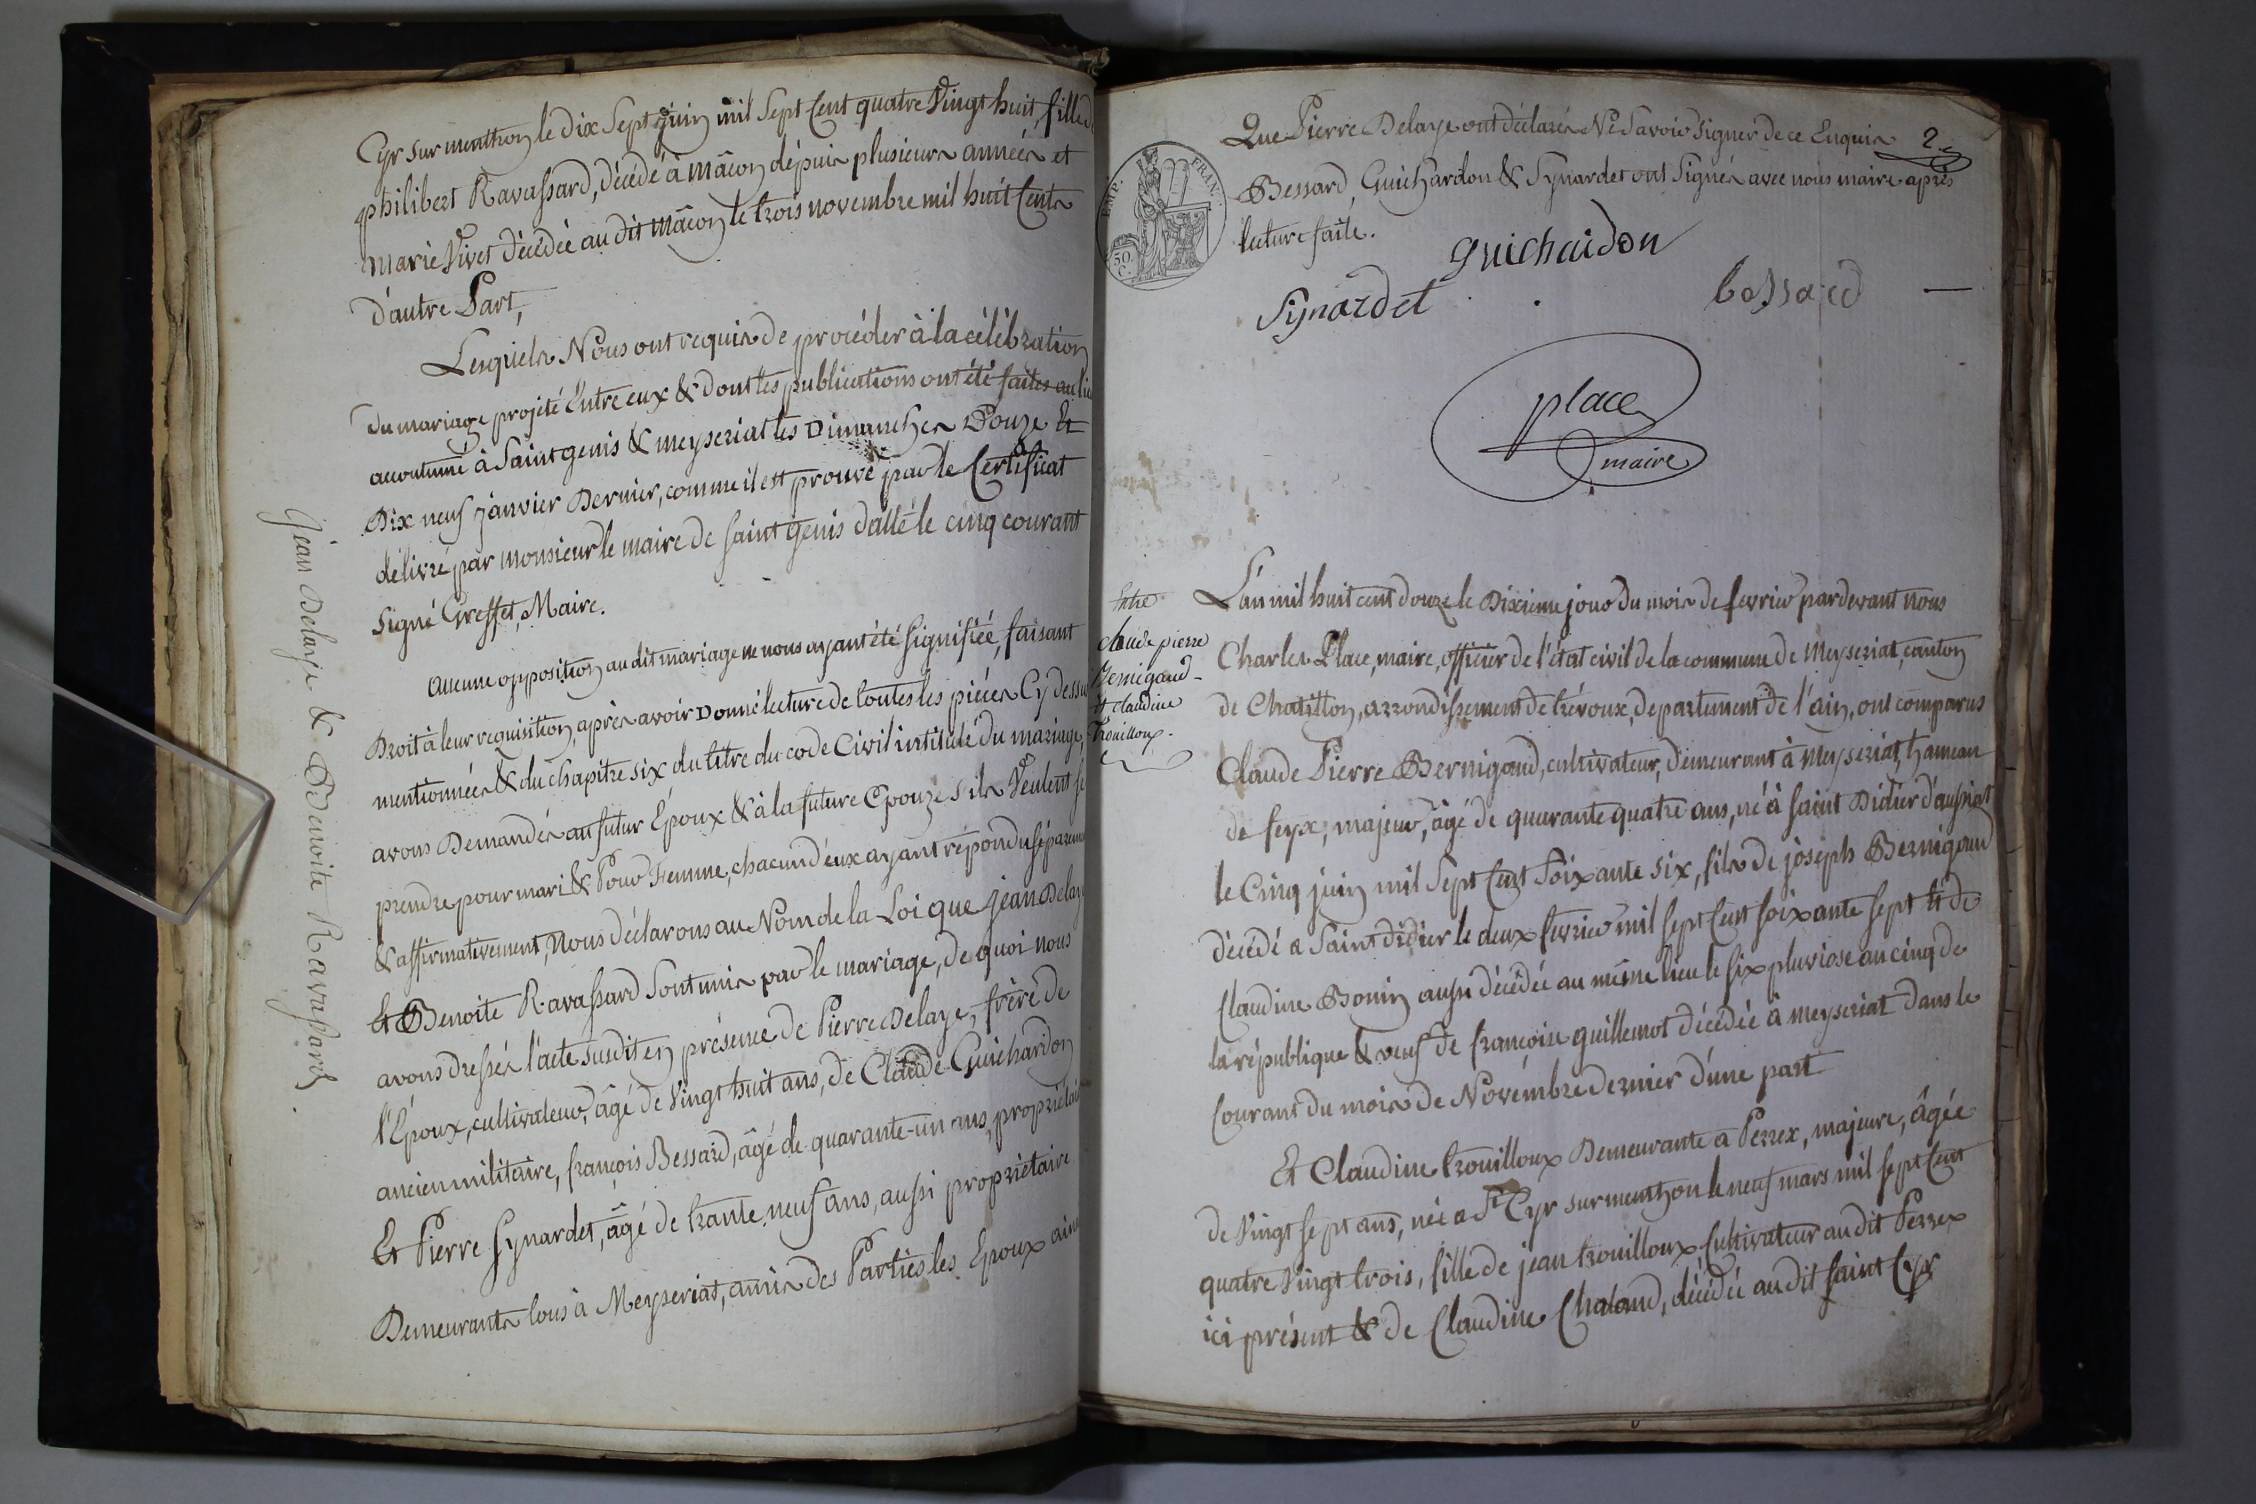 Cyr sur menthon le dix Sept juin mil Sept Cent quatre Vingt huit, fille de
philibert Ravassard, décédé à Mâcon dépuis plusieurs années et
Marie Vivet décédée au dit Mâcon le trois novembre mil huit Cents
d'autre Part,
Lesquels Nous ont requis de procéder à la célébration
du mariage projeté Entre eux & dont les publications ont été faites au lieu
accoutumé à Saint genis & meyseriat les Dimanches Douze Et
Dix neuf janvier Dernier, comme il est prouvé par le Certificat
délivré par monsieur le maire de Saint Genis datté le cinq courant
Signé Greffet, Maire.
Aucune opposition au dit mariage ne nous ayant été signifiée, faisant
Droit à leur requisition, après avoir Donné lecture de toutes les piéces Cy dessus
mentionnées & du chapitre six du titre du code Civil intitulé du mariage,
avons Demandés au futur Epoux & à la future Epouze s'ils Veulent se
prendre pour mari & Pour Femme, chacun d'eux ayant répondu séparement
& affirmativement, Nous déclarons au Nom de la Loi que jean Delaye
Et Benoite Ravassard Sont unis par le mariage, de quoi nous
avons dressés l'acte susdit en présence de Pierre Delaye, frère de
l'Epoux, cultivateur, âgé de Vingt huit ans, de Claude Guichardon
ancien militaire, françois Bessard, âgé de quarante-un ans, propriétaire
Et Pierre Synardet, âgé de trante neuf ans, aussi propriétaire
Demeurants tous à Meyseriat, amis des Parties les Epoux ainsi
Jean Delaye & Benoite Ravassard.
Que Pierre Delaye ont déclarés Ne Savoir Signer de ce Enquis
2.e
Bessard, Guichardon & Synardet ont Signés avec nous maire après
lecture faite.
EMP. FRAN.
50. C.
Guichardon
Synardet
bessard
place
maire
Entre
claude pierre
Bernigaud
et claudine
Trouilloux.
L'an mil huit cent douze le Dixieme jour du mois de fevrier par devant nous
Charles Place, maire, officier de l'état civil de la commune de Meyseriat, canton
de Chatillon, arrondissement de trévoux, departement de l'ain, ont comparus
Claude Pierre Bernigaud, cultivateur, demeurant à Meyseriat, hameau
de feyx, majeur, âgé de quarante quatre ans, né à Saint Didier d'aussiat
le Cinq juin mil Sept Cent Soixante Six, fils de joseph Bernigaud
décédé a Saint didier le deux fevrier mil sept Cent soixante sept Et de
Claudine Bonin aussi décédée au même lieu le six pluviose an cinq de
la république & veuf de françoise guillemot décédée à meyseriat dans le
Courant du mois de Novembre dernier d'une part
Et Claudine trouilloux Demeurante a Perrex, majeure, âgée
de Vingt sept ans, née a St Cyr sur menthon le neuf mars mil sept Cent
quatre Vingt trois, fille de jean trouilloux Cultivateur au dit Perrex
ici présent & de Claudine Chaland, décédée au dit Saint Cyr